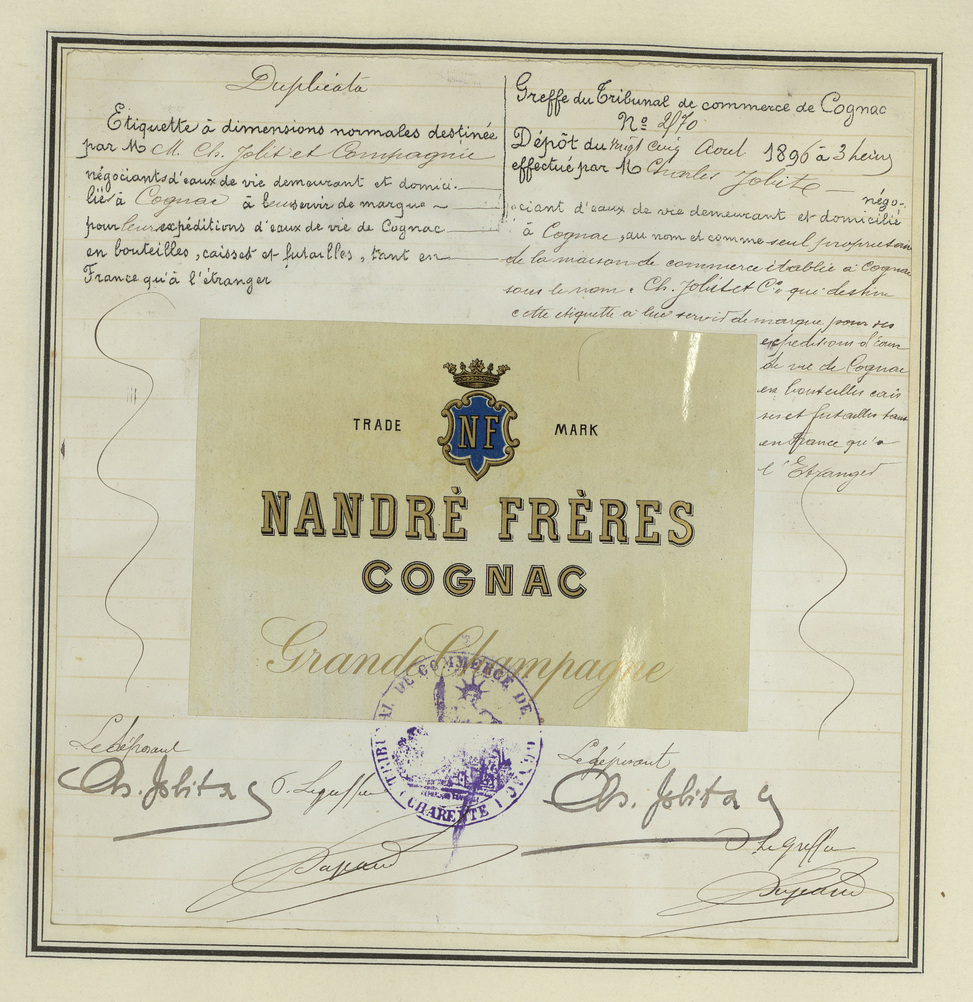 Duplicata
Etiquette à dimensions normales destinée
par M M. Ch. Jolit et Compagnie
négociants d'eaux de vie demeurant et domici-
liés à Cognac à leur servir de marque
pour leurs expéditions d'eaux de vie de Cognac
en bouteilles, caisses et futailles, tant en
France qu'à l'étranger
Greffe du Tribunal de commerce de Cognac
Nº 2170
Dépôt du vingt cinq Aout 1896 à 3 heures
effectué par M Charles Jolit
négo-
ciant d'eaux de vie demeurant et domicilié
à Cognac, au nom et comme seul propriétaire
de la maison de commerce établie à Cognac
sous le nom Ch. Jolit et Cie que destine
cette étiquette à leur servir de marque pour ses
expéditions d'eaux
de vie de Cognac
en bouteilles cais
ses et futailles tant
en France qu'à
l'Etranger
TRADE NF MARK
NANDRÈ FRÈRES
COGNAC
Grande Champagne
TRIBUNAL DE COMMERCE DE COGNAC
(CHARENTE)
Le déposant
Ch. Jolit & Cº
Le Greffier
Le déposant
Ch. Jolit & Cº
Le Greffier